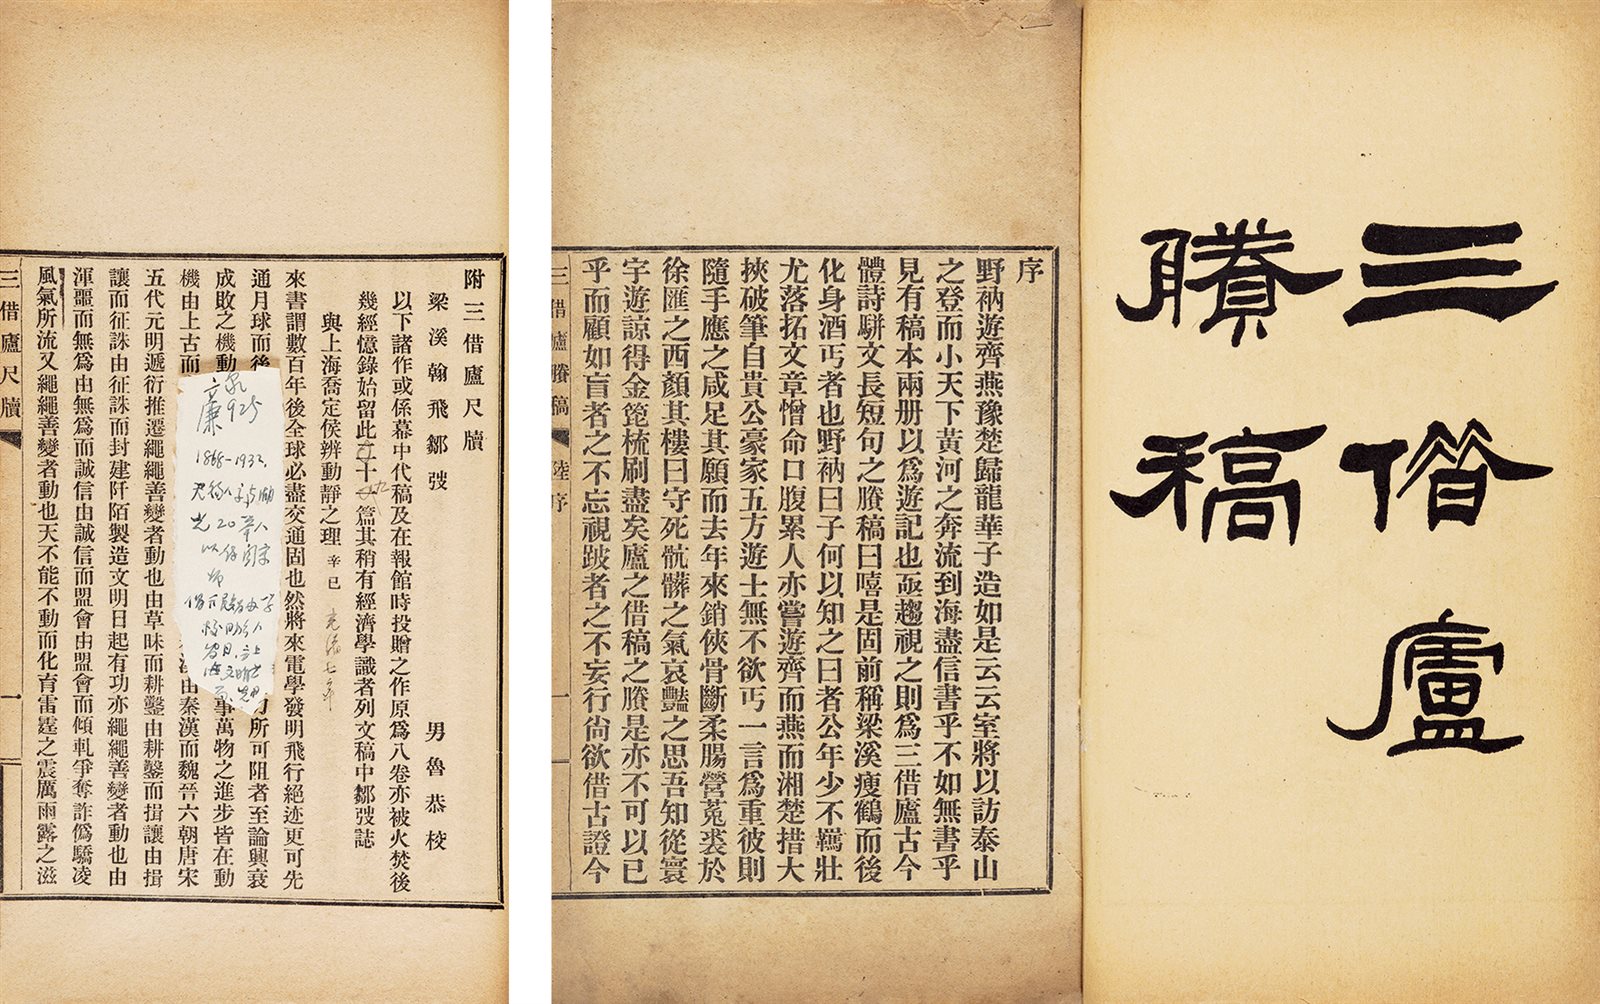 三借廬
賸稿
序
野衲遊齊燕豫楚歸龍華子造如是云云室將以訪泰山
之登而小天下黃河之奔流到海盡信書乎不如無書乎
見有稿本兩册以爲遊記也亟趨視之則爲三借廬古今
體詩駢文長短句之賸稿曰嘻是固前稱梁溪瘦鶴而後
化身酒丐者也野衲曰子何以知之曰者公年少不羈壯
尤落拓文章憎命口腹累人亦嘗遊齊而燕而湘楚措大
挾破筆自貴公豪家五方遊士無不欲丐一言爲重彼則
隨手應之咸足其願而去年來銷俠骨斷柔腸營菟裘於
徐匯之西顏其樓曰守死骯髒之氣哀豔之思吾知從寰
宇遊諒得金箆梳刷盡矣廬之借稿之賸是亦不可以已
乎而顧如盲者之不忘視跛者之不妄行尙欲借古證今
三借廬賸稿 陸序 一
附三借廬尺牘
梁溪翰飛鄒弢 男魯恭校
以下諸作或係幕中代稿及在報館時投贈之作原爲八卷亦被火焚後
幾經憶錄始留此 十 篇其稍有經濟學識者列文稿中鄒弢誌
與上海喬定侯辨動靜之理 辛巳 光緒七年
來書謂數百年後全球必盡交通固也然將來電學發明飛行絕迹更可先
通月球而後 所可阻者至論興衰
成敗之機動 萬物之進步皆在動
機由上古而 由秦漢而魏晉六朝唐宋
五代元明遞衍推遷繩繩善變者動也由草昧而耕鑿由耕鑿而揖讓由揖
讓而征誅由征誅而封建阡陌製造文明日起有功亦繩繩善變者動也由
渾噩而無爲由無爲而誠信由誠信而盟會由盟會而傾軋爭奪詐僞驕凌
風氣所流又繩繩善變者動也天不能不動而化育雷霆之震厲雨露之滋
三借廬尺牘 一
925
1868-1932.
光20